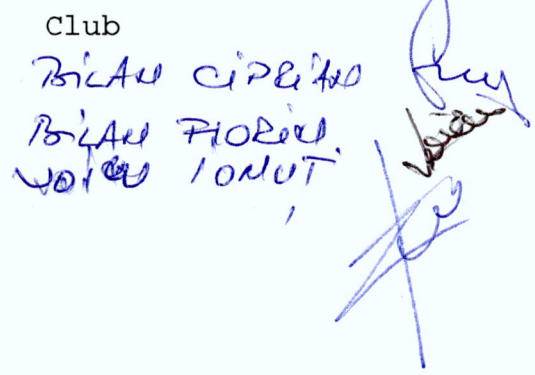 Club
BILAN CIPRIAN
BILAN FLORIN.
VOICU IONUȚ